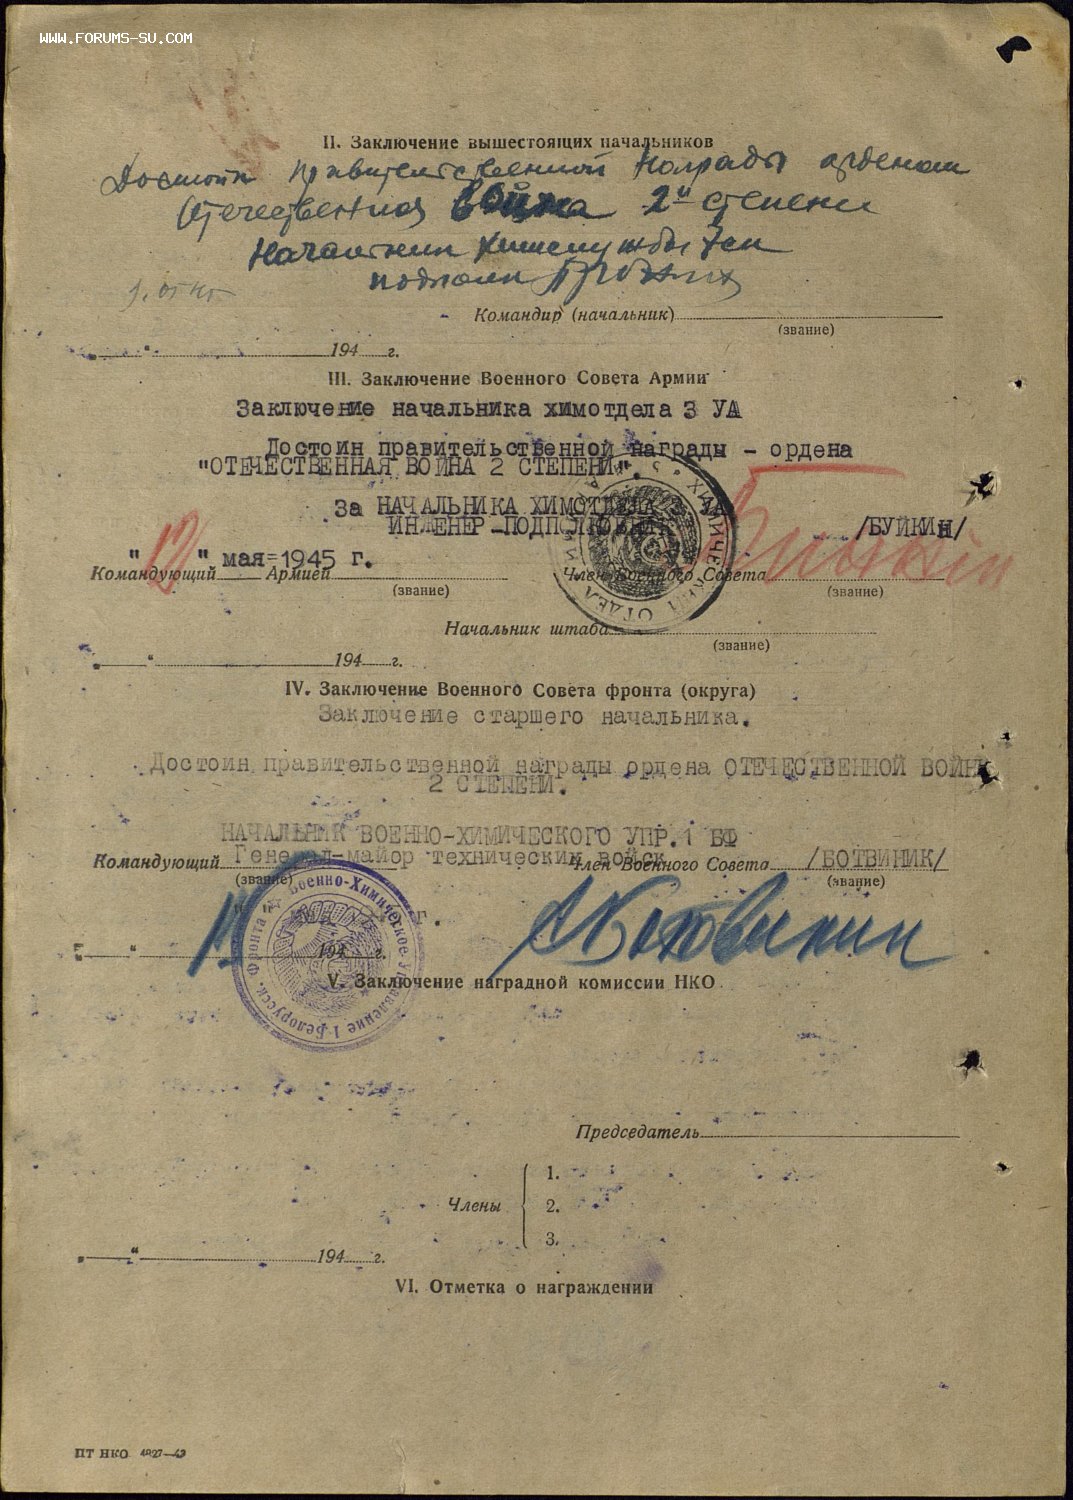 WWW.FORUMS-SU.COM
II. Заключение вышестоящих начальников
Достоин правительственной награды орденом
Отечественная война 2й степени
Начальник химслужбы
Командир (начальник)
(звание)
„ “ 194 г.
III. Заключение Военного Совета Армии
Заключение начальника химотдела 3 УА
Достоин правительственной награды – ордена
"ОТЕЧЕСТВЕННАЯ ВОЙНА 2 СТЕПЕНИ".
За НАЧАЛЬНИКА ХИМОТДЕЛА 3 УА
ИНЖЕНЕР-ПОДПОЛКОВНИК /БУЙКИН/
"12" мая 1945 г.
Командующий Армией Член Военного Совета
(звание) (звание)
Начальник штаба
(звание)
„ “ 194 г.
IV. Заключение Военного Совета фронта (округа)
Заключение старшего начальника.
Достоин правительственной награды ордена ОТЕЧЕСТВЕННОЙ ВОЙНЫ
2 СТЕПЕНИ.
НАЧАЛЬНИК ВОЕННО-ХИМИЧЕСКОГО УПР.1 БФ
Генерал-майор технических войск /БОТВИНИК/
Командующий Член Военного Совета
(звание) (звание)
г.
„ “ 194 г.
Военно-Химическое Управление 1 Белорусск. Фронта
V. Заключение наградной комиссии НКО
Председатель
Члены
1.
2.
3.
„ “ 194 г.
VI. Отметка о награждении
ПТ НКО 4827—43